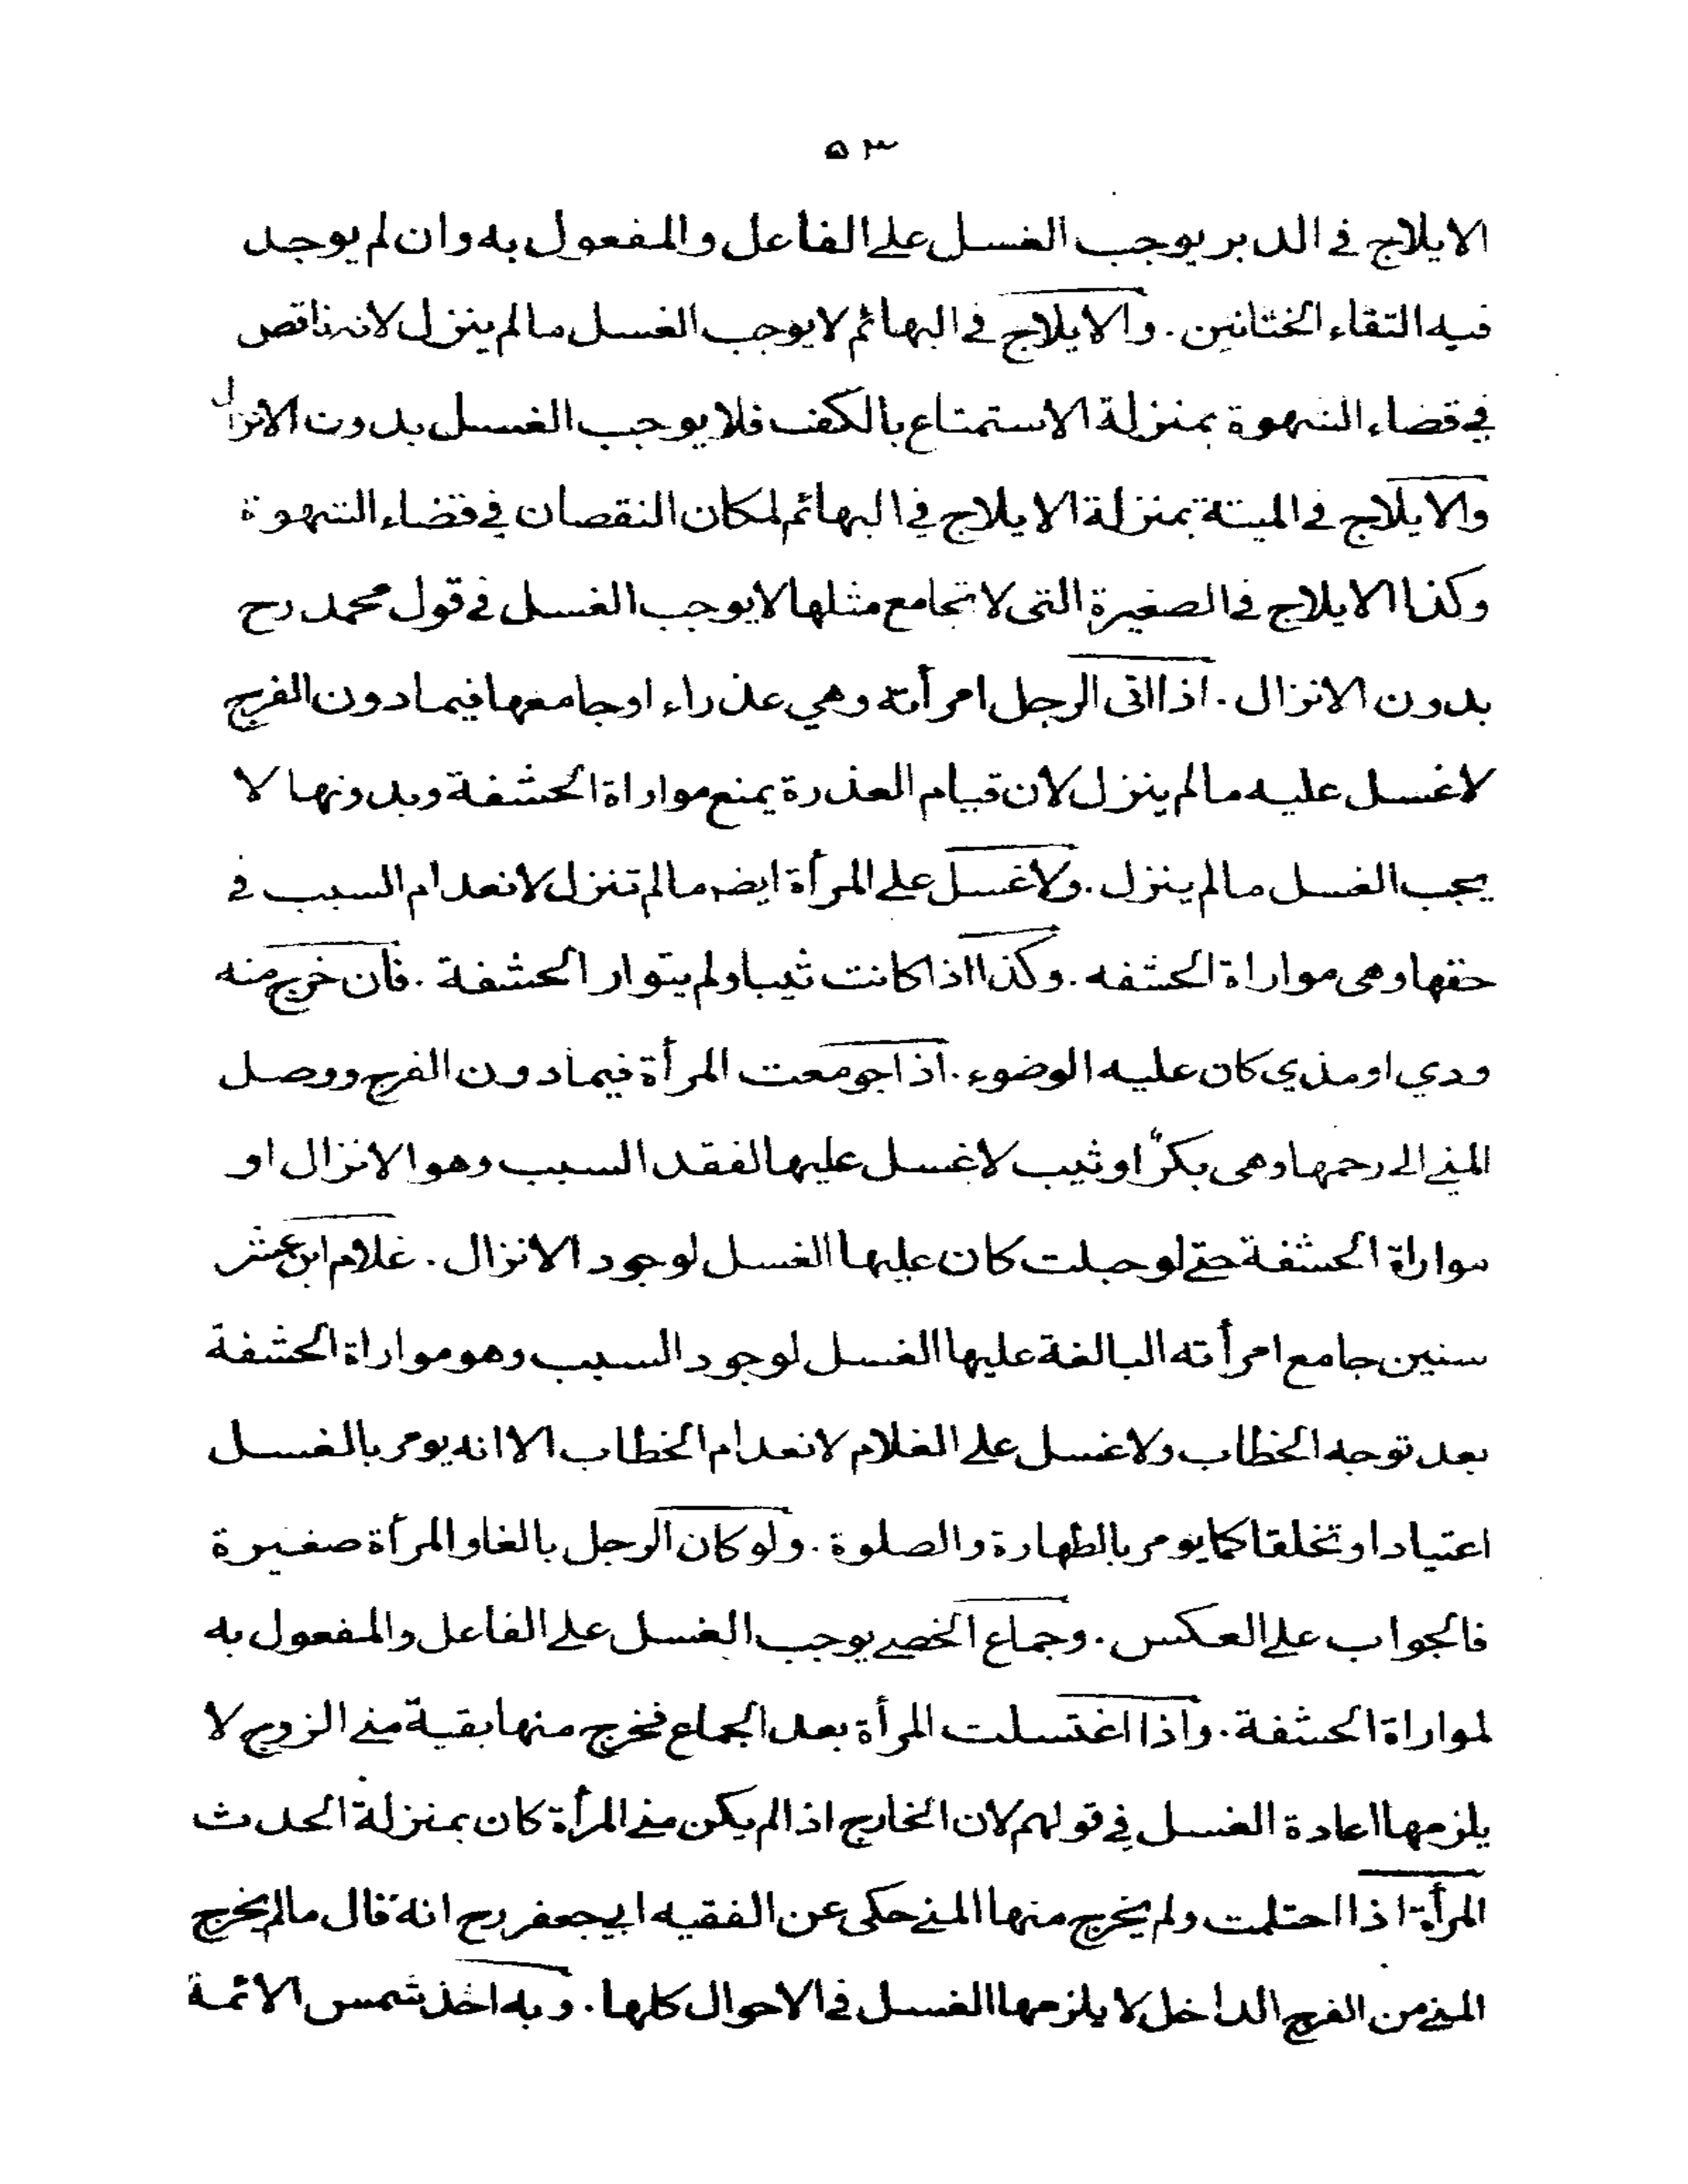 ٥٣
الايلاج في الدبر يوجب الغسل على الفاعل والمفعول به وان لم يوجد
فيه التقاء الختانين. والايلاج في البهائم لا يوجب الغسل ما لم ينزل لانه ناقص
في قضاء الشهوة بمنزلة الاستمتاع بالكف فلا يوجب الغسل بدون الانزال
والايلاج في الميتة بمنزلة الايلاج في البهائم لمكان النقصان في قضاء الشهوة
وكذا الايلاج في الصغيرة التى لا تجامع مثلها لا يوجب الغسل في قول محمد رح
بدون الانزال. اذا اتى الرجل امرأته وهي عذراء او جامعها فيما دون الفرج
لا غسل عليه ما لم ينزل لان قيام العذرة يمنع مواراة الحشفة وبدونها لا
يجب الغسل ما لم ينزل. ولا غسل على المرأة ايضا ما لم تنزل لانعدام السبب في
حقها وهى مواراة الحشفه. وكذا اذا كانت ثيبا ولم يتوار الحشفة. فان خرج منه
ودي او مذي كان عليه الوضوء. اذا جومعت المرأة فيما دون الفرج ووصل
المني الى رحمها وهى بكرٌ او ثيب لا غسل عليها لفقد السبب وهو الانزال او
مواراة الحشفة حتى لو حبلت كان عليها الغسل لوجود الانزال. غلام ابن عشر
سنين جامع امرأته البالغة عليها الغسل لوجود السبب وهو مواراة الحشفة
بعد توجه الخطاب ولا غسل على الغلام لانعدام الخطاب الا انه يومر بالغسل
اعتيادا وتخلقا كما يومر بالطهارة والصلوة. ولو كان الرجل بالغا والمرأة صغيرة
فالجواب على العكس. وجماع الخصي يوجب الغسل على الفاعل والمفعول به
لمواراة الحشفة. واذا اغتسلت المرأة بعد الجماع فخرج منها بقية مني الزوج لا
يلزمها اعادة الغسل في قولهم لان الخارج اذا لم يكن مني المرأة كان بمنزلة الحدث
المرأة اذا احتلمت ولم يخرج منها المني حكى عن الفقيه ابي جعفر رح انه قال ما لم يخرج
المني من الفرج الداخل لا يلزمها الغسل في الاحوال كلها. وبه اخذ شمس الائمة